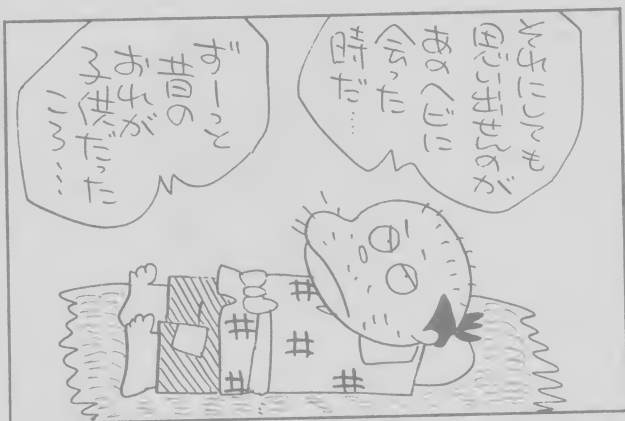 それにしても
思い出せんのが
あのヘビに
会った
時だ……
ずーっと
昔の
おれが
子供だった
ころ…